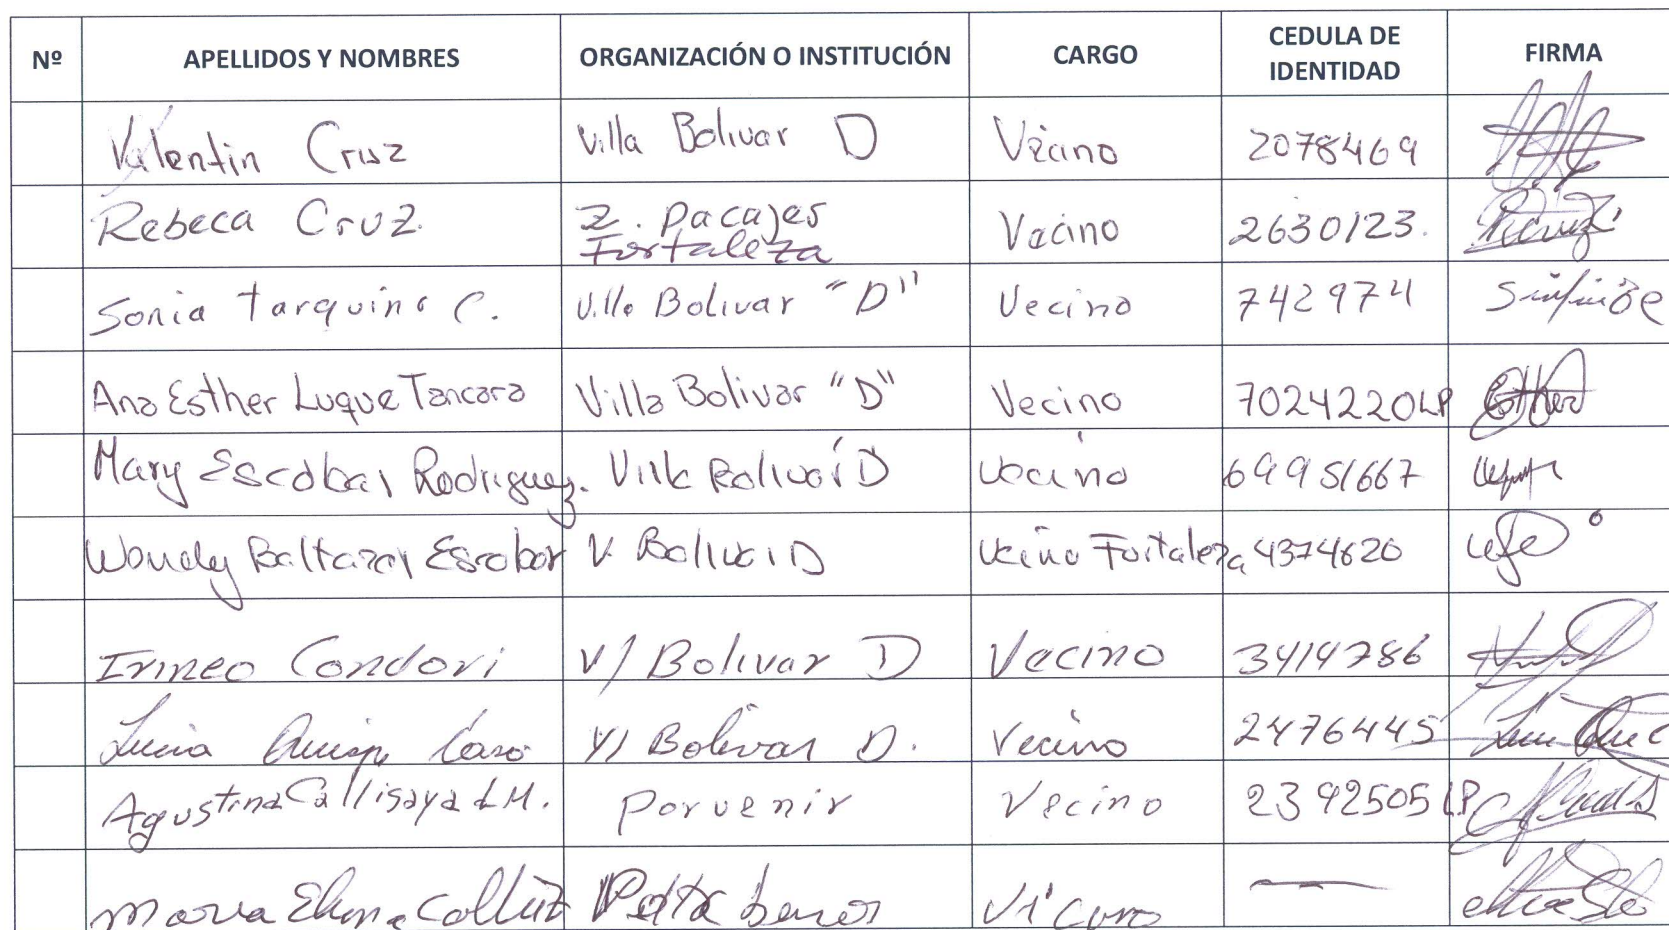 Nº APELLIDOS Y NOMBRES ORGANIZACIÓN O INSTITUCIÓN CARGO CEDULA DE IDENTIDAD FIRMA
Valentin Cruz Villa Bolivar D Vecino 2078469
Rebeca Cruz. Z. Pacajes Fortaleza Vecino 2630123.
Sonia Tarquino C. Villa Bolivar "D" Vecino 742974
Ana Esther Luque Tancara Villa Bolivar "D" Vecino 7024220LP
Mary Escobar Rodriguez. Villa Bolivar D Vecino 69951667
Wendy Baltazar Escobar V. Bolivar D Vecino Fortaleza 4374620
Irineo Condori V/ Bolivar D Vecino 3414786
Lucia Quispe Caso V/ Bolivar D. Vecino 2476445
Agustina Callisaya d M. Porvenir Vecino 2392505 LP
Maria Elena